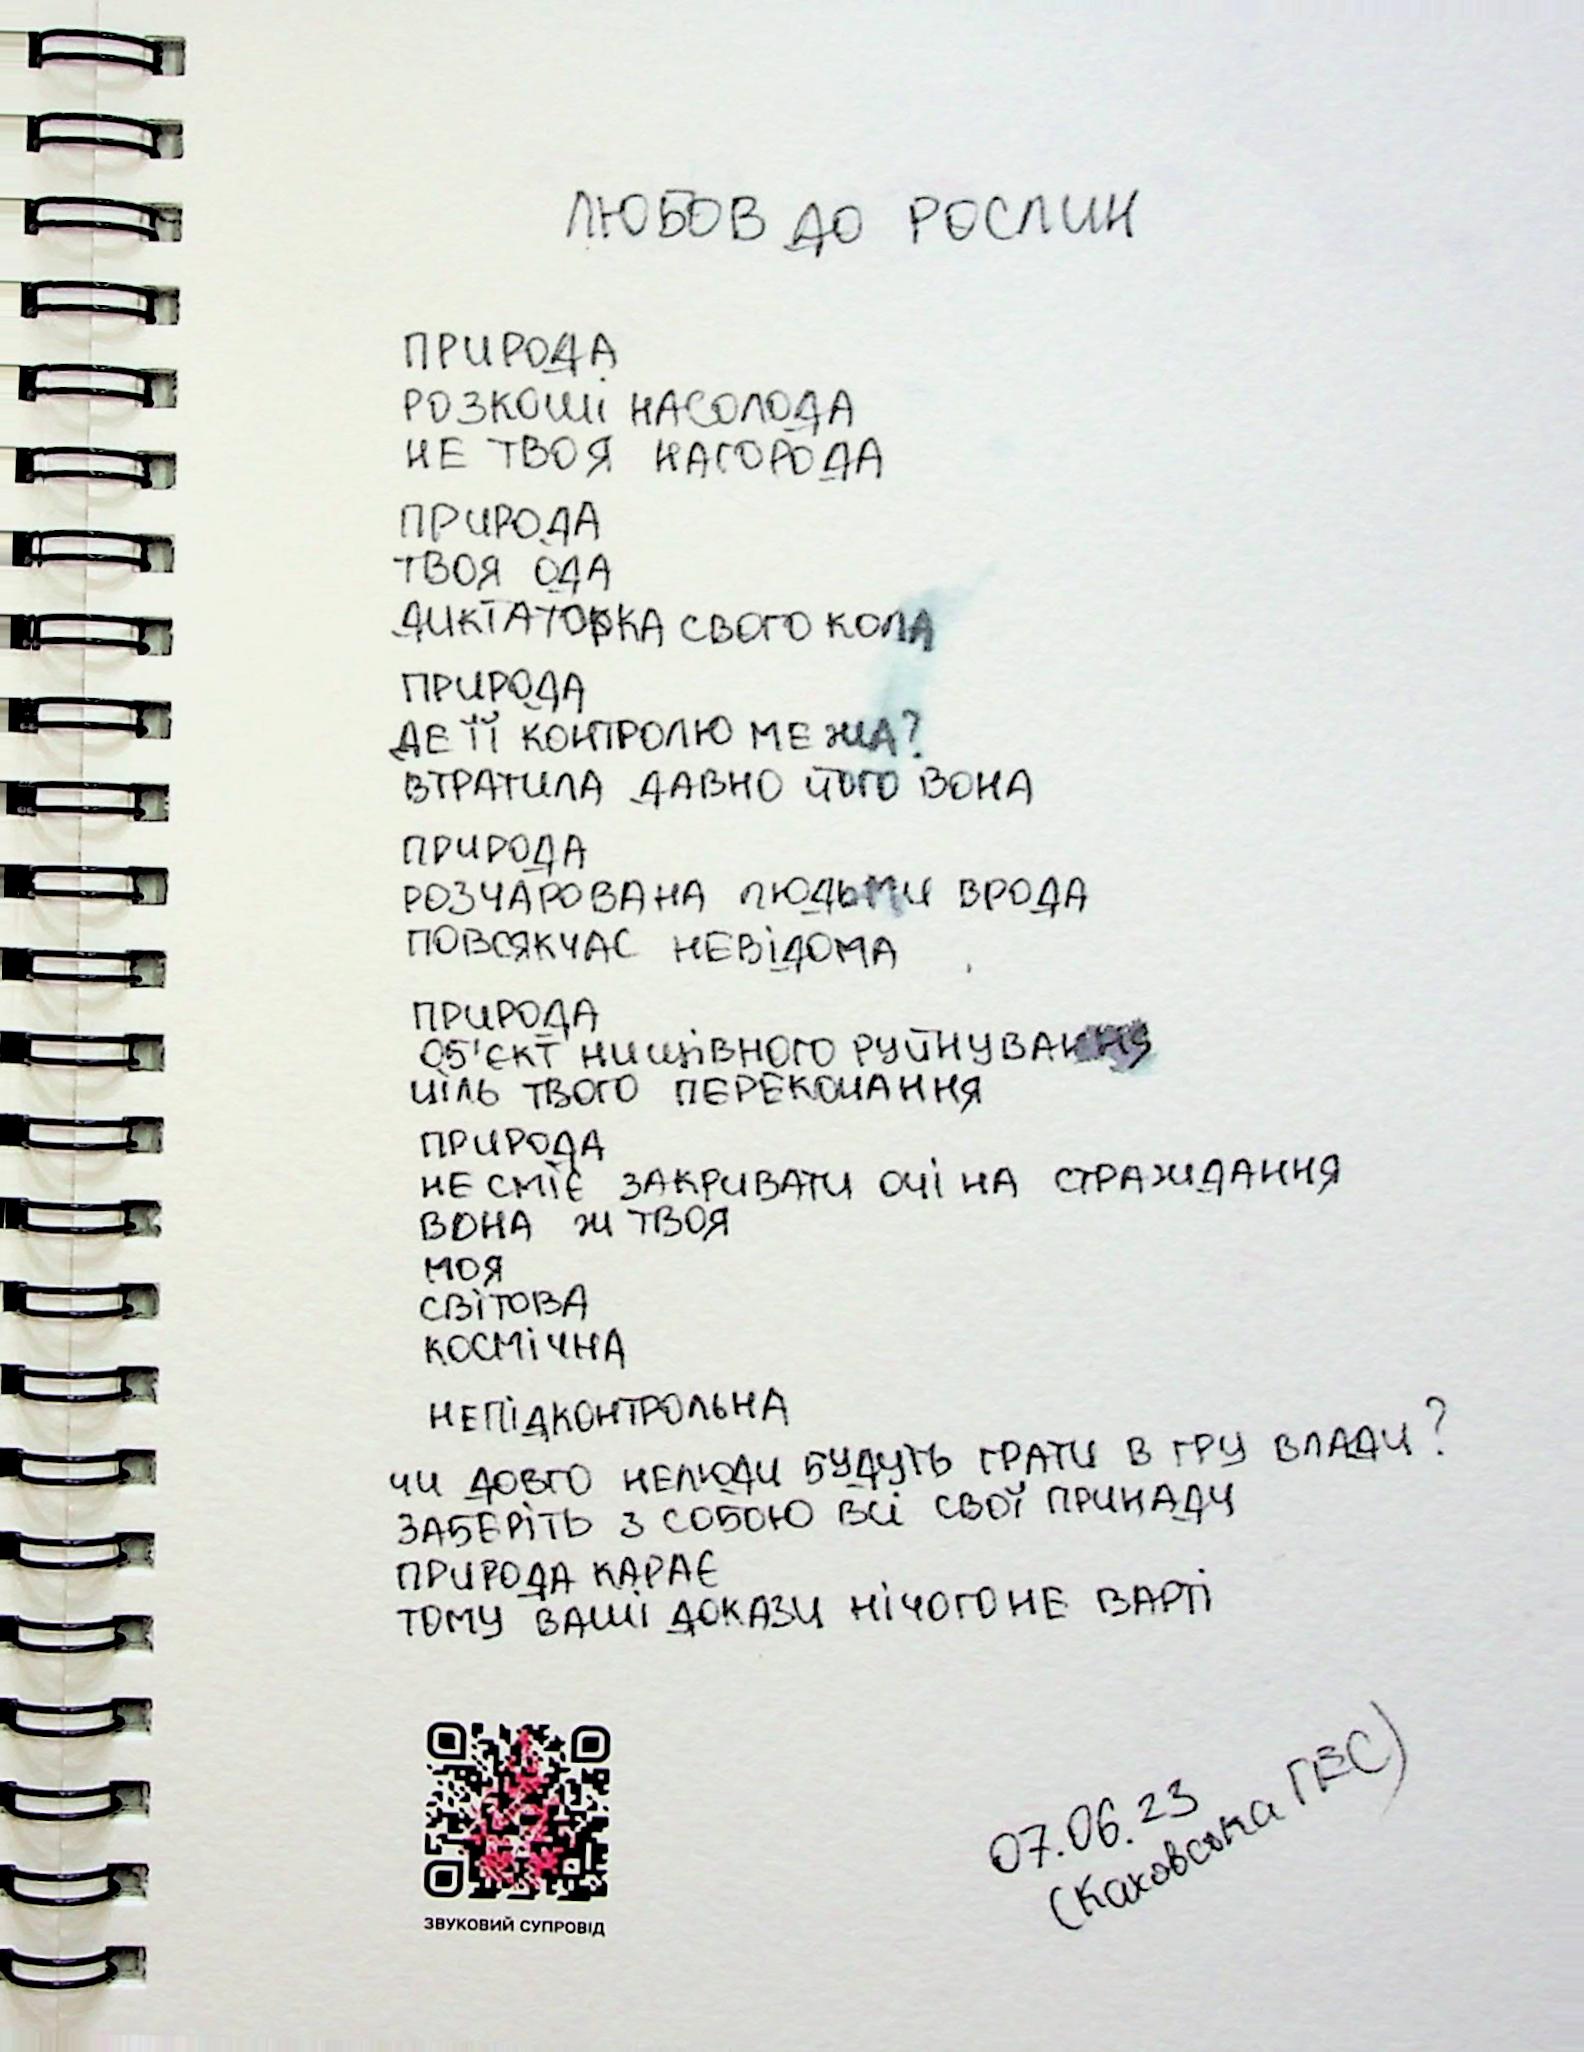 ЛЮБОВ ДО РОСЛИН
ПРИРОДА
РОЗКОШІ НАСОЛОДА
НЕ ТВОЯ НАГОРОДА
ПРИРОДА
ТВОЯ ОДА
ДИКТАТОРКА СВОГО КОЛА
ПРИРОДА
ДЕ ЇЇ КОНТРОЛЮ МЕЖА?
ВТРАТИЛА ДАВНО ЙОГО ВОНА
ПРИРОДА
РОЗЧАРОВАНА ЛЮДЬМИ ВРОДА
ПОВСЯКЧАС НЕВІДОМА
ПРИРОДА
ОБ'ЄКТ НИЩІВНОГО РУЙНУВАННЯ
ЦІЛЬ ТВОГО ПЕРЕКОНАННЯ
ПРИРОДА
НЕ СМІЄ ЗАКРИВАТИ ОЧІ НА СТРАЖДАННЯ
ВОНА Ж ТВОЯ
МОЯ
СВІТОВА
КОСМІЧНА
НЕПІДКОНТРОЛЬНА
ЧИ ДОВГО НЕЛЮДИ БУДУТЬ ГРАТИ В ГРУ ВЛАДИ?
ЗАБЕРІТЬ З СОБОЮ ВСІ СВОЇ ПРИНАДИ
ПРИРОДА КАРАЄ
ТОМУ ВАШІ ДОКАЗИ НІЧОГО НЕ ВАРТІ
ЗВУКОВИЙ СУПРОВІД
07.06.23
(Каховська ГЕС)